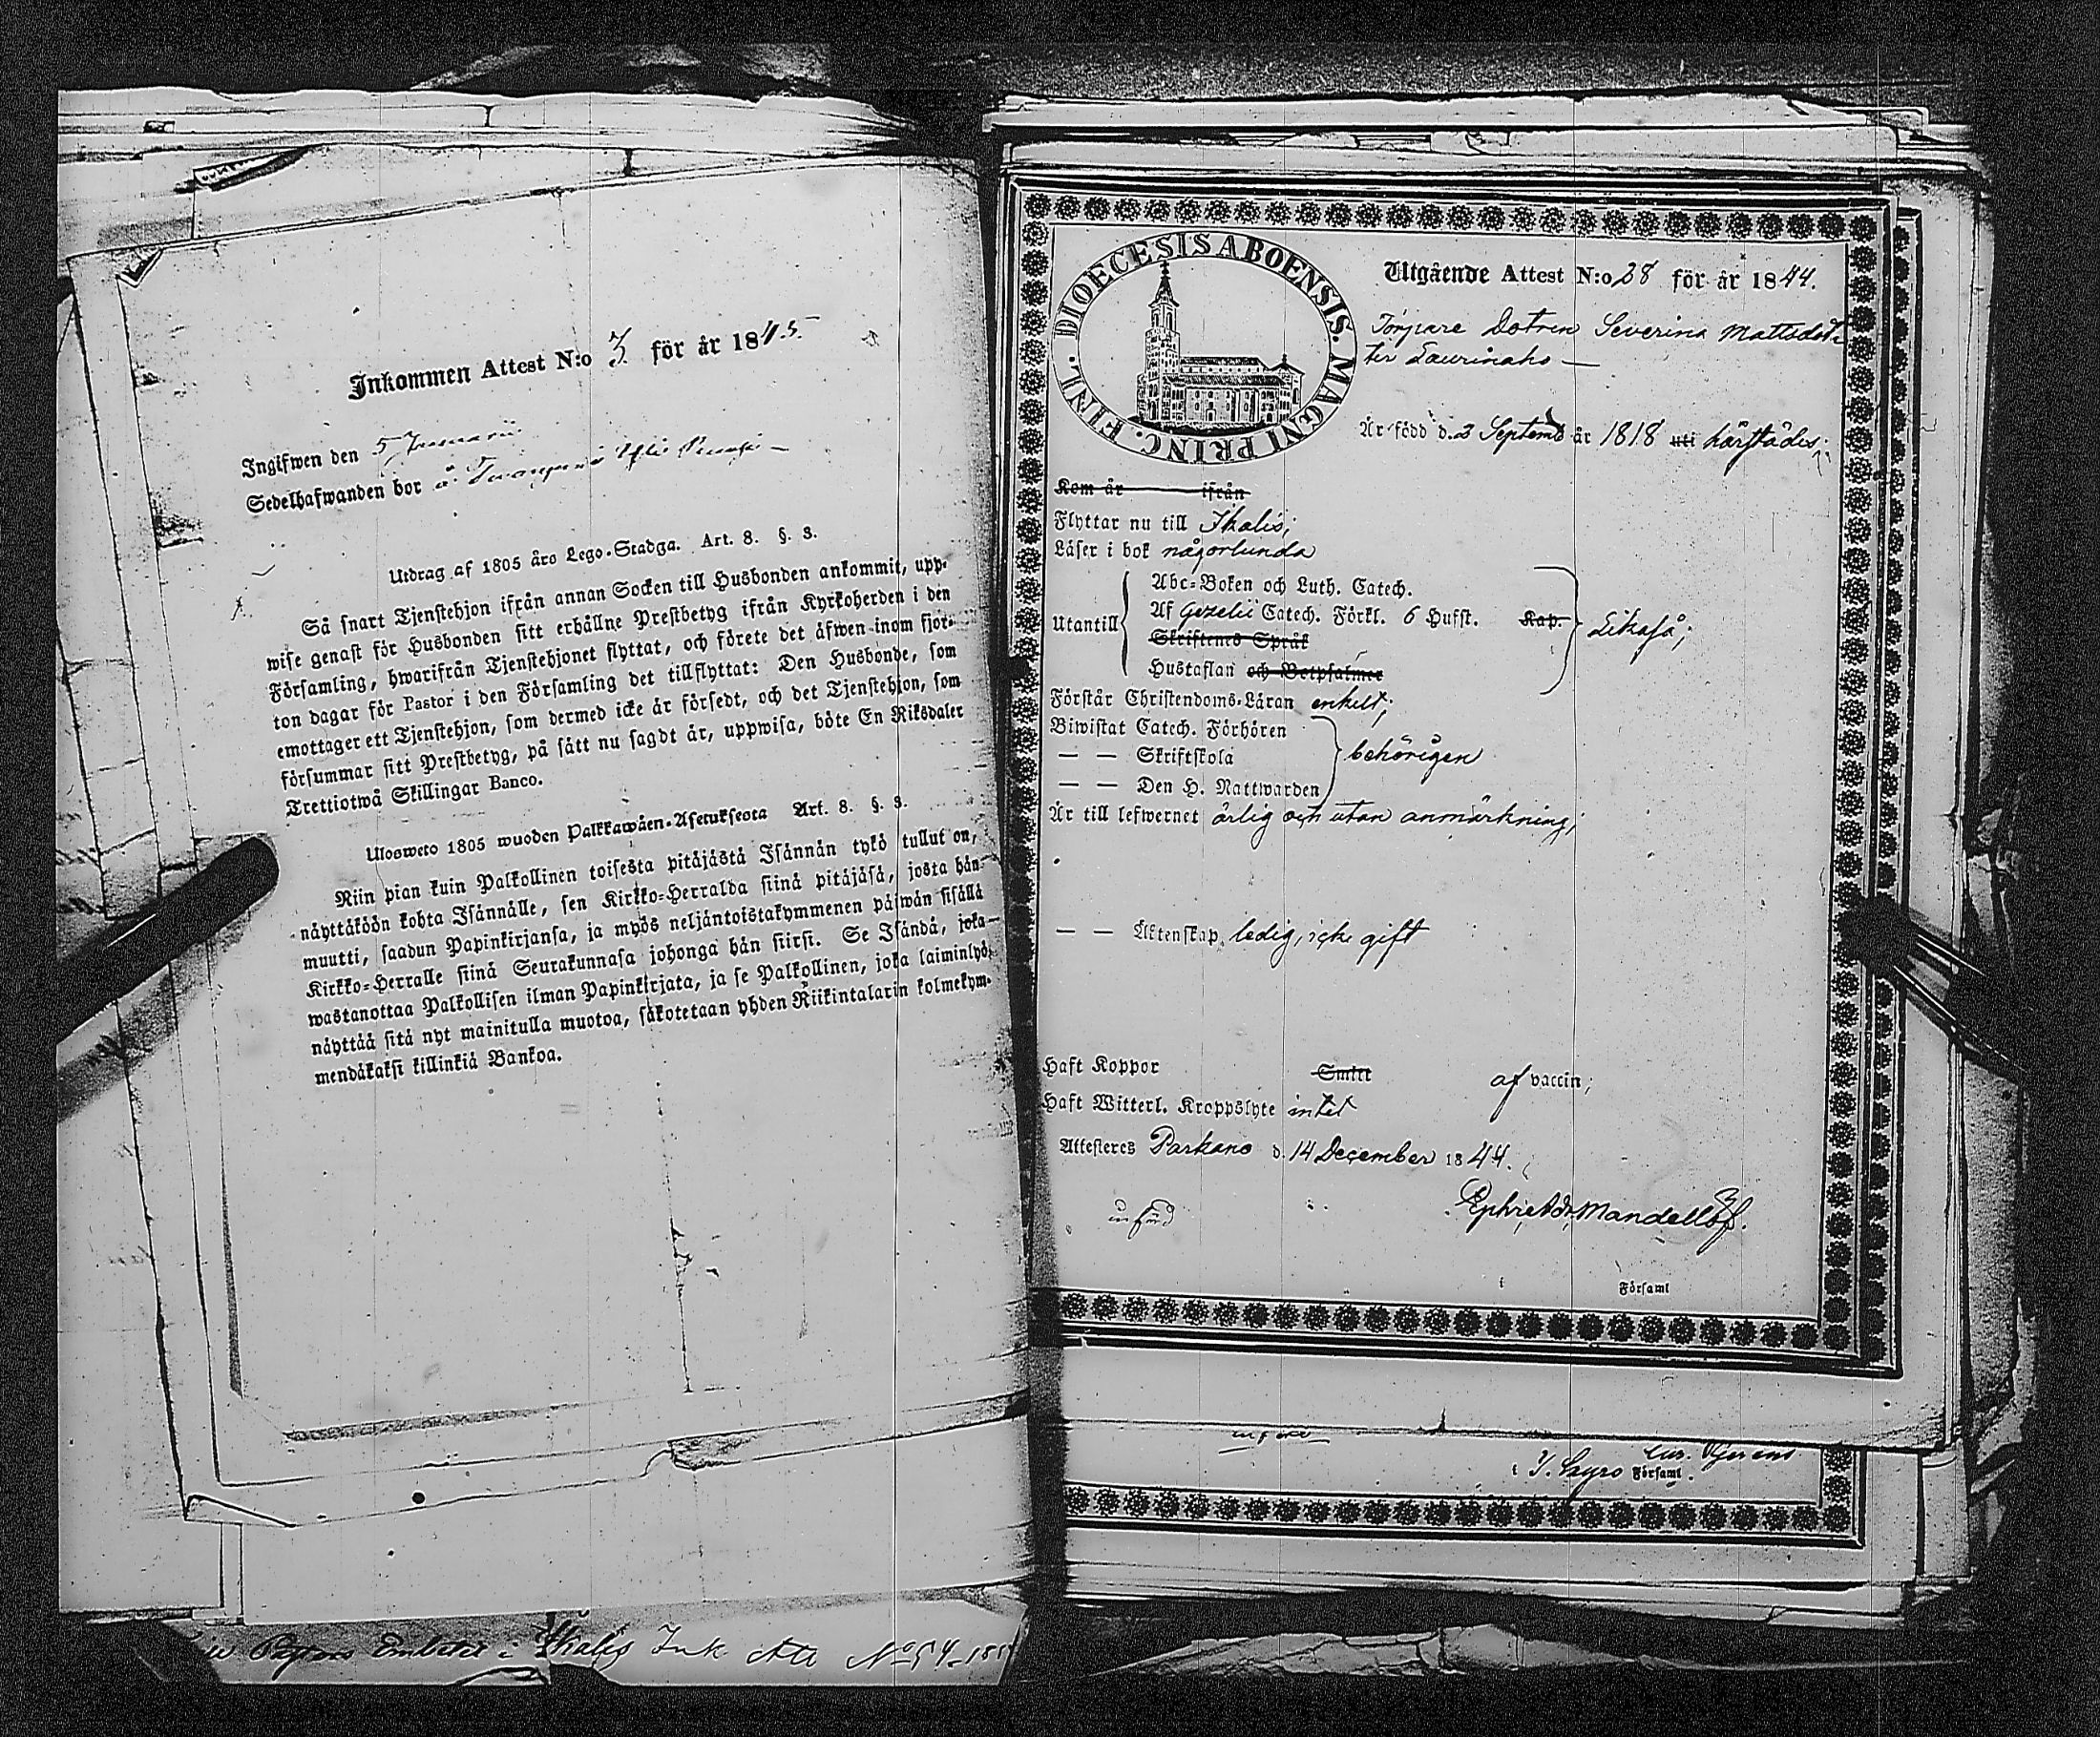 Inkommen Attest N:o 3. för år 1845.
Ingifwen den 5 Januarii
Sedelhafwanden bor å
Utdrag af 1805 åro Lego-Stadga. Art. 8. §. 3.
Så snart Tjenstehjon ifrån annan Socken till Husbonden ankommit, upp-
wise genast för Husbonden sitt erhållne Prestbetyg ifrån Kyrkoherden i den
Församling, hwarifrån Tjenstehjonet flyttat, och förete det äfwen inom fjor-
ton dagar för Pastor i den Församling det tillflyttat: Den Husbonde, som
emottager ett Tjenstehjon, som dermed icke är försedt, och det Tjenstehjon, som
försummar sitt Prestbetyg, på sätt nu sagdt är, uppwisa, böte En Riksdaler
Trettiotwå Skillingar Banco.
Ulosweto 1805 wuoden Palkkawäen-Asetuksesta Art. 8. §. 3.
Niin pian kuin Palkollinen toisesta pitäjästä Isännän tykö tullut on,
näyttäköön kohta Isännälle, sen Kirkko-Herralda siinä pitäjäsä, josta hän
muutti, saadun Papinkirjansa, ja myös neljäntoistakymmenen päiwän sisällä
Kirkko-Herralle siinä Seurakunnasa johonga hän siirsi. Se Isändä, joka
wastanottaa Palkollisen ilman Papinkirjata, ja se Palkollinen, joka laiminlyö
näyttää sitä nyt mainitulla muotoa, sakotetaan yhden Riikintalarin kolmekym-
mendäkaksi killinkiä Bankoa.
Pastors Embetet i Ikalis Ink Atte No 54
DIOECESIS ABOENSIS. MAGNI PRINC. FINL.
Utgående Attest N:o 28 för år 1844.
Torpare Dotren Severina Mattsdot-
ter Laurinaho —
Är född d. 3 Septemb år 1818 uti härstädes;
Kom år ifrån
Flyttar nu till Ikalis;
Läser i bok någorlunda
Abc-Boken och Luth. Catech.
Utantill Af Gezelii Catech. Förkl. 6 Hufst. Kap. Likaså;
Skriftenes Språk
Hustaflan och Botpsalmer
Förstår Christendoms-Läran enkelt;
Biwistat Catech. Förhören
— — Skriftskola behörigen
— — Den H. Nattwarden
Är till lefwernet ärlig och utan anmärkning;
— — Äktenskap ledig, icke gift
Haft Koppor Smitt af vaccin;
Haft Witterl. Kroppslyte intet
Attesteres Parkano d. 14 December 1844.
införd Mandellöf.
i Församl
i Kyro Församl.